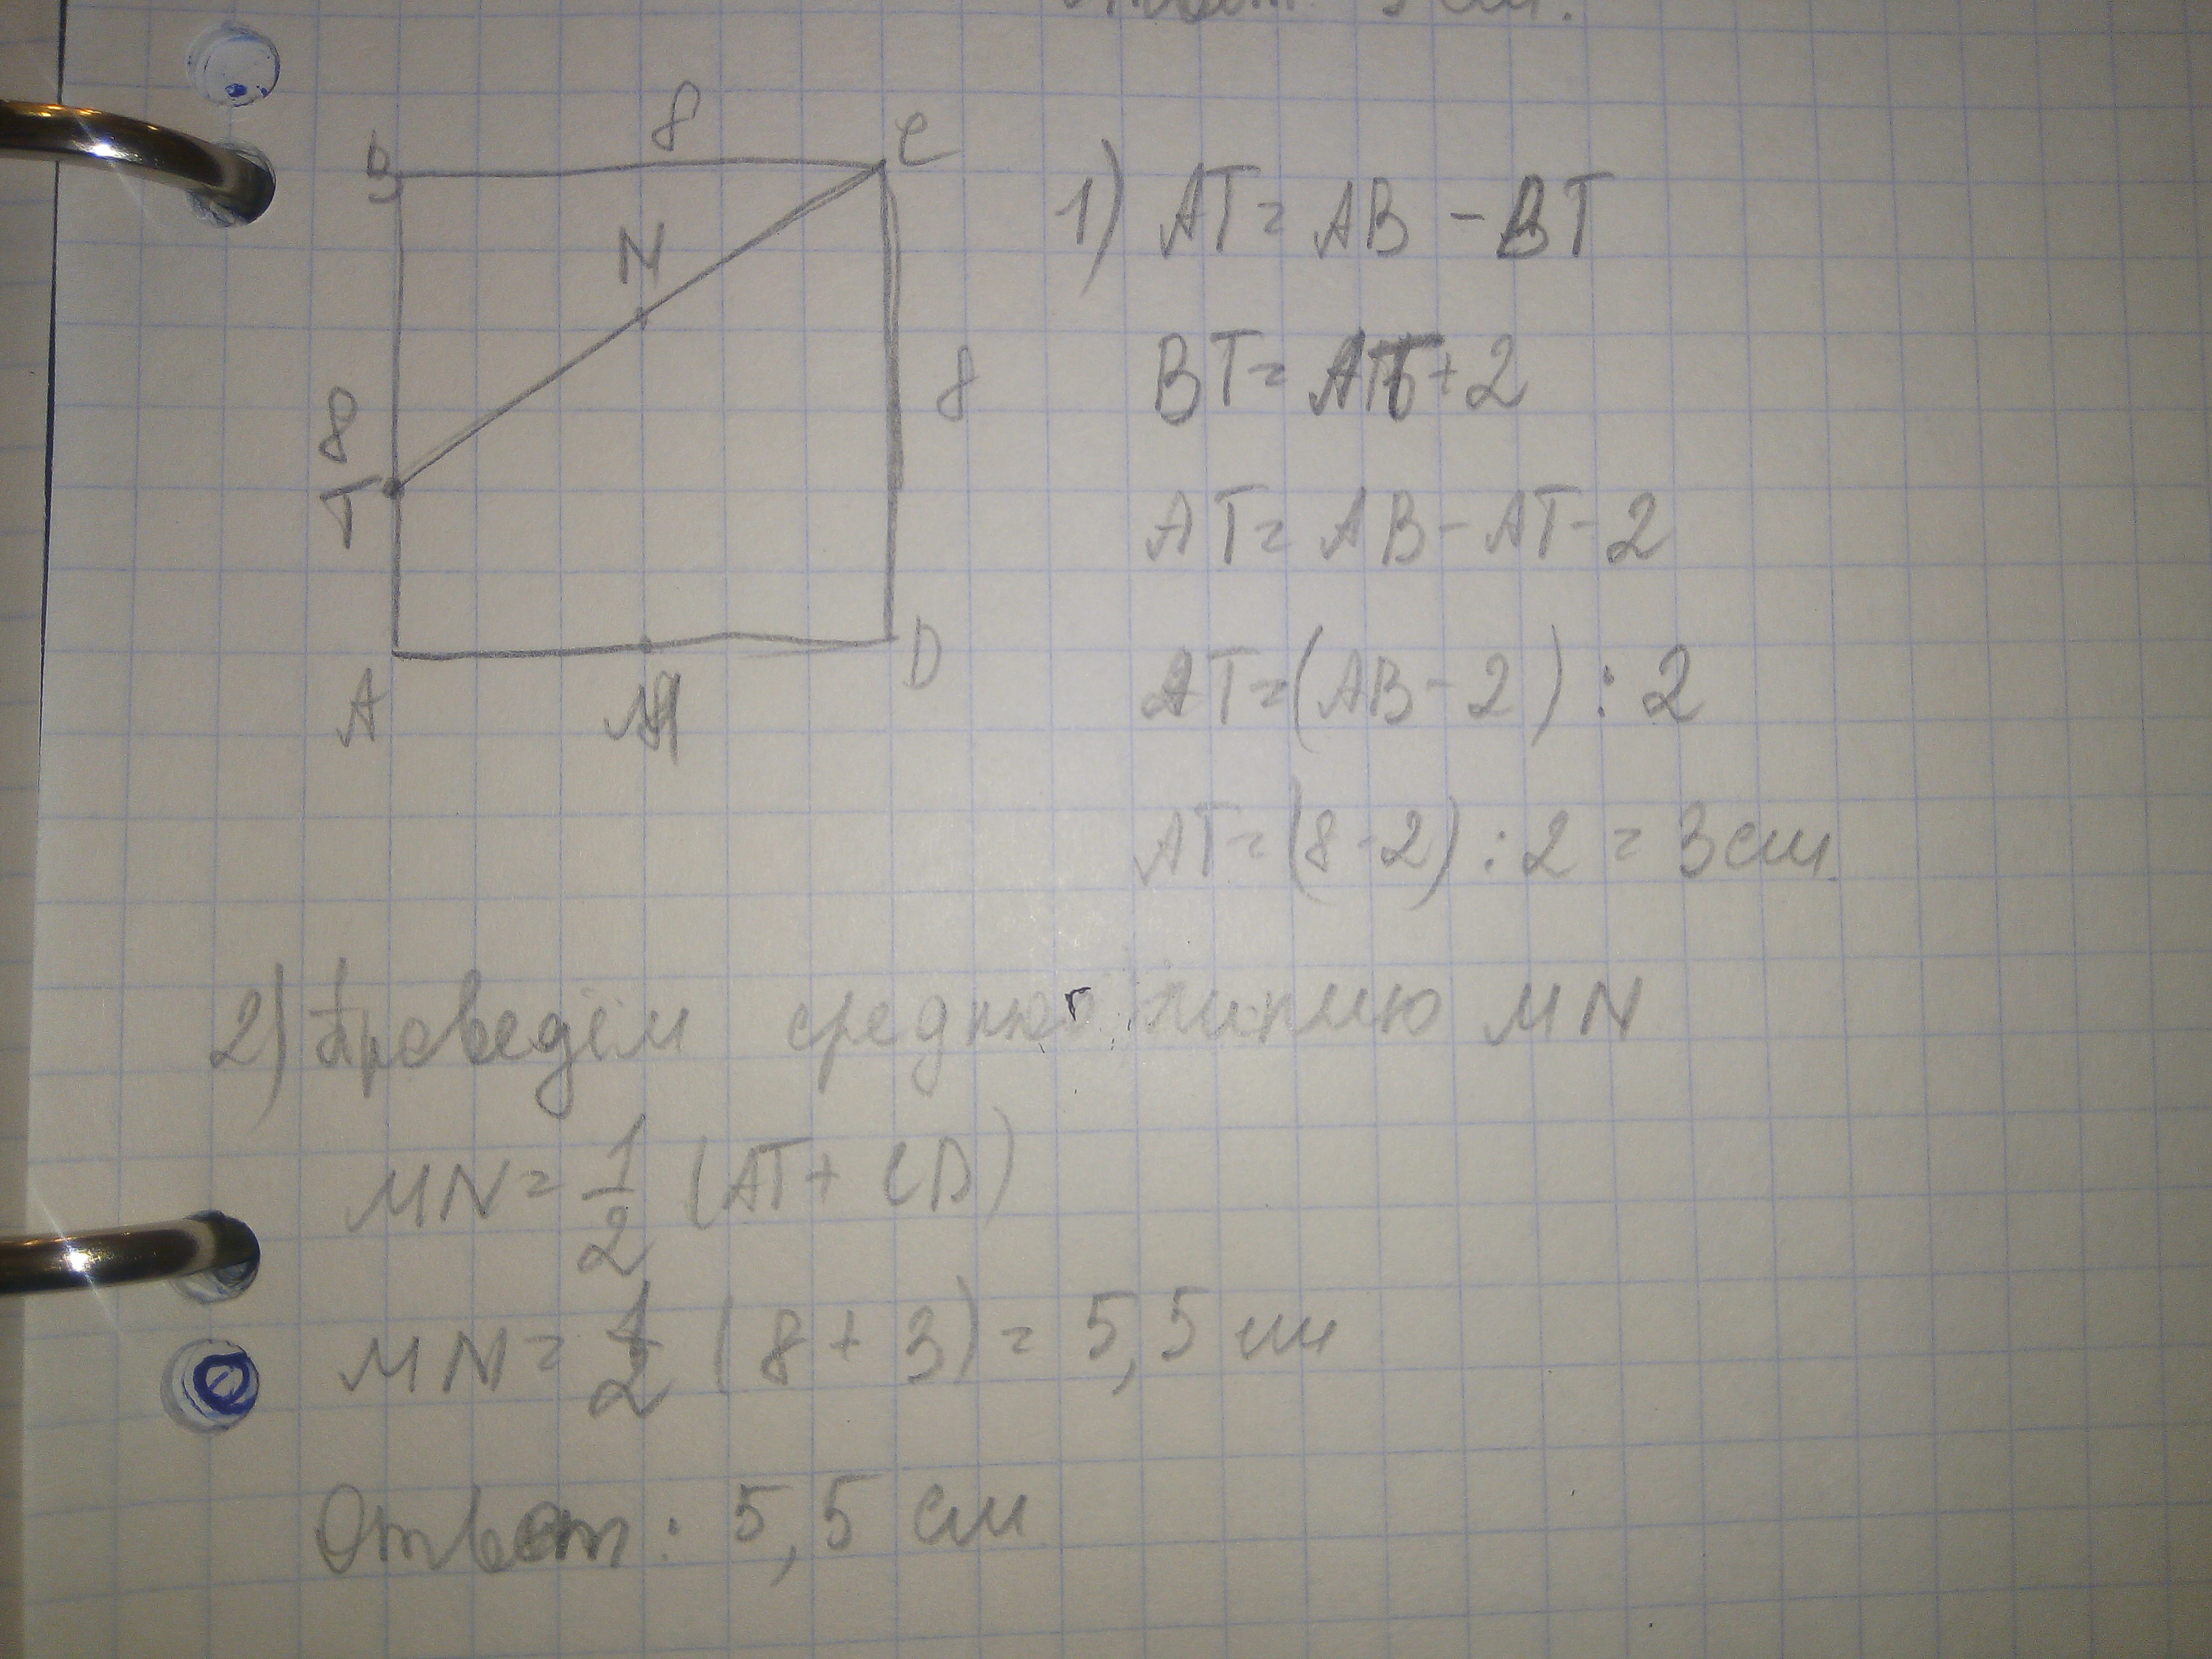 8
B
C
N
8
8
T
A
M
D
1) AT = AB - BT
BT = AT + 2
AT = AB - AT - 2
AT = (AB - 2) : 2
AT = (8 - 2) : 2 = 3 см.
2) Проведём среднюю линию MN
MN = 1/2 (AT + CD)
MN = 1/2 (8 + 3) = 5,5 см
Ответ: 5,5 см